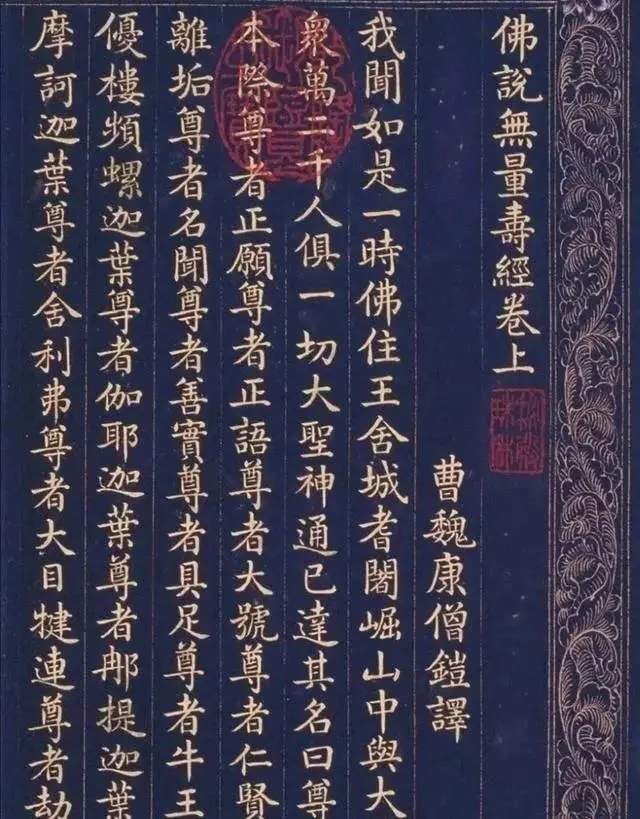 佛說無量壽經卷上
曹魏康僧鎧譯
我聞如是一時佛住王舍城耆闍崛山中與大
衆萬二千人俱一切大聖神通已達其名曰尊
本際尊者正願尊者正語尊者大號尊者仁賢
離垢尊者名聞尊者善實尊者具足尊者牛王
優樓頻螺迦葉尊者伽耶迦葉尊者那提迦葉
摩訶迦葉尊者舍利弗尊者大目犍連尊者劫